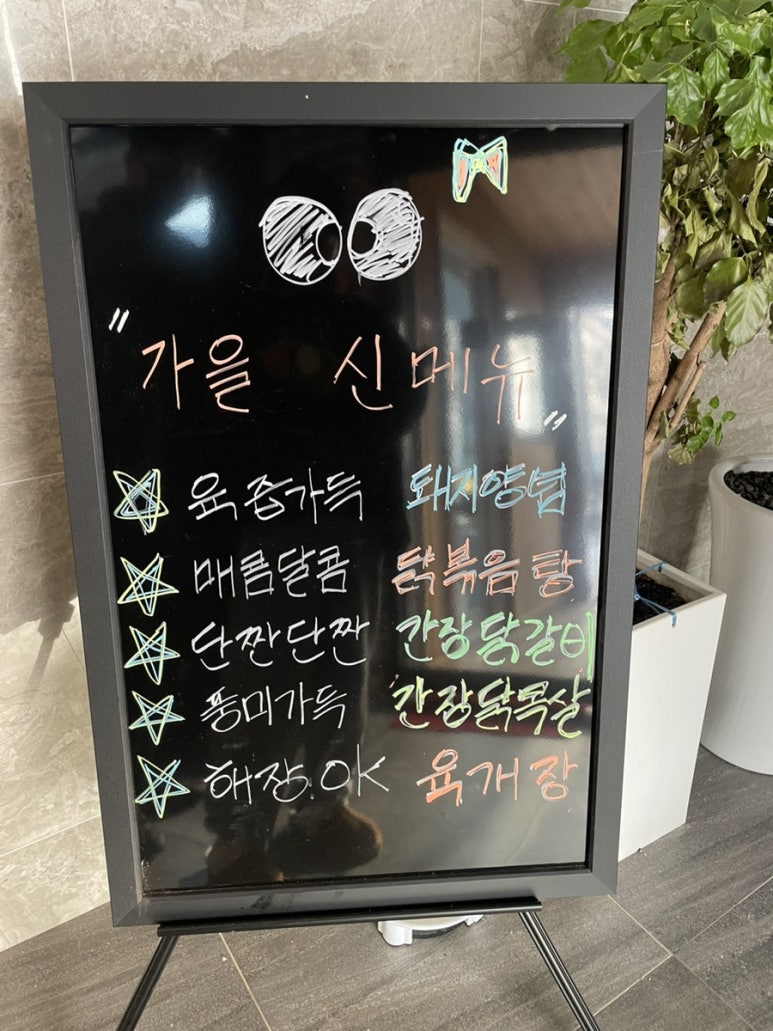 "가을 신메뉴"
육즙가득 돼지양념
매콤달콤 닭볶음탕
단짠단짠 간장닭갈비
풍미가득 간장닭목살
해장.OK 육개장